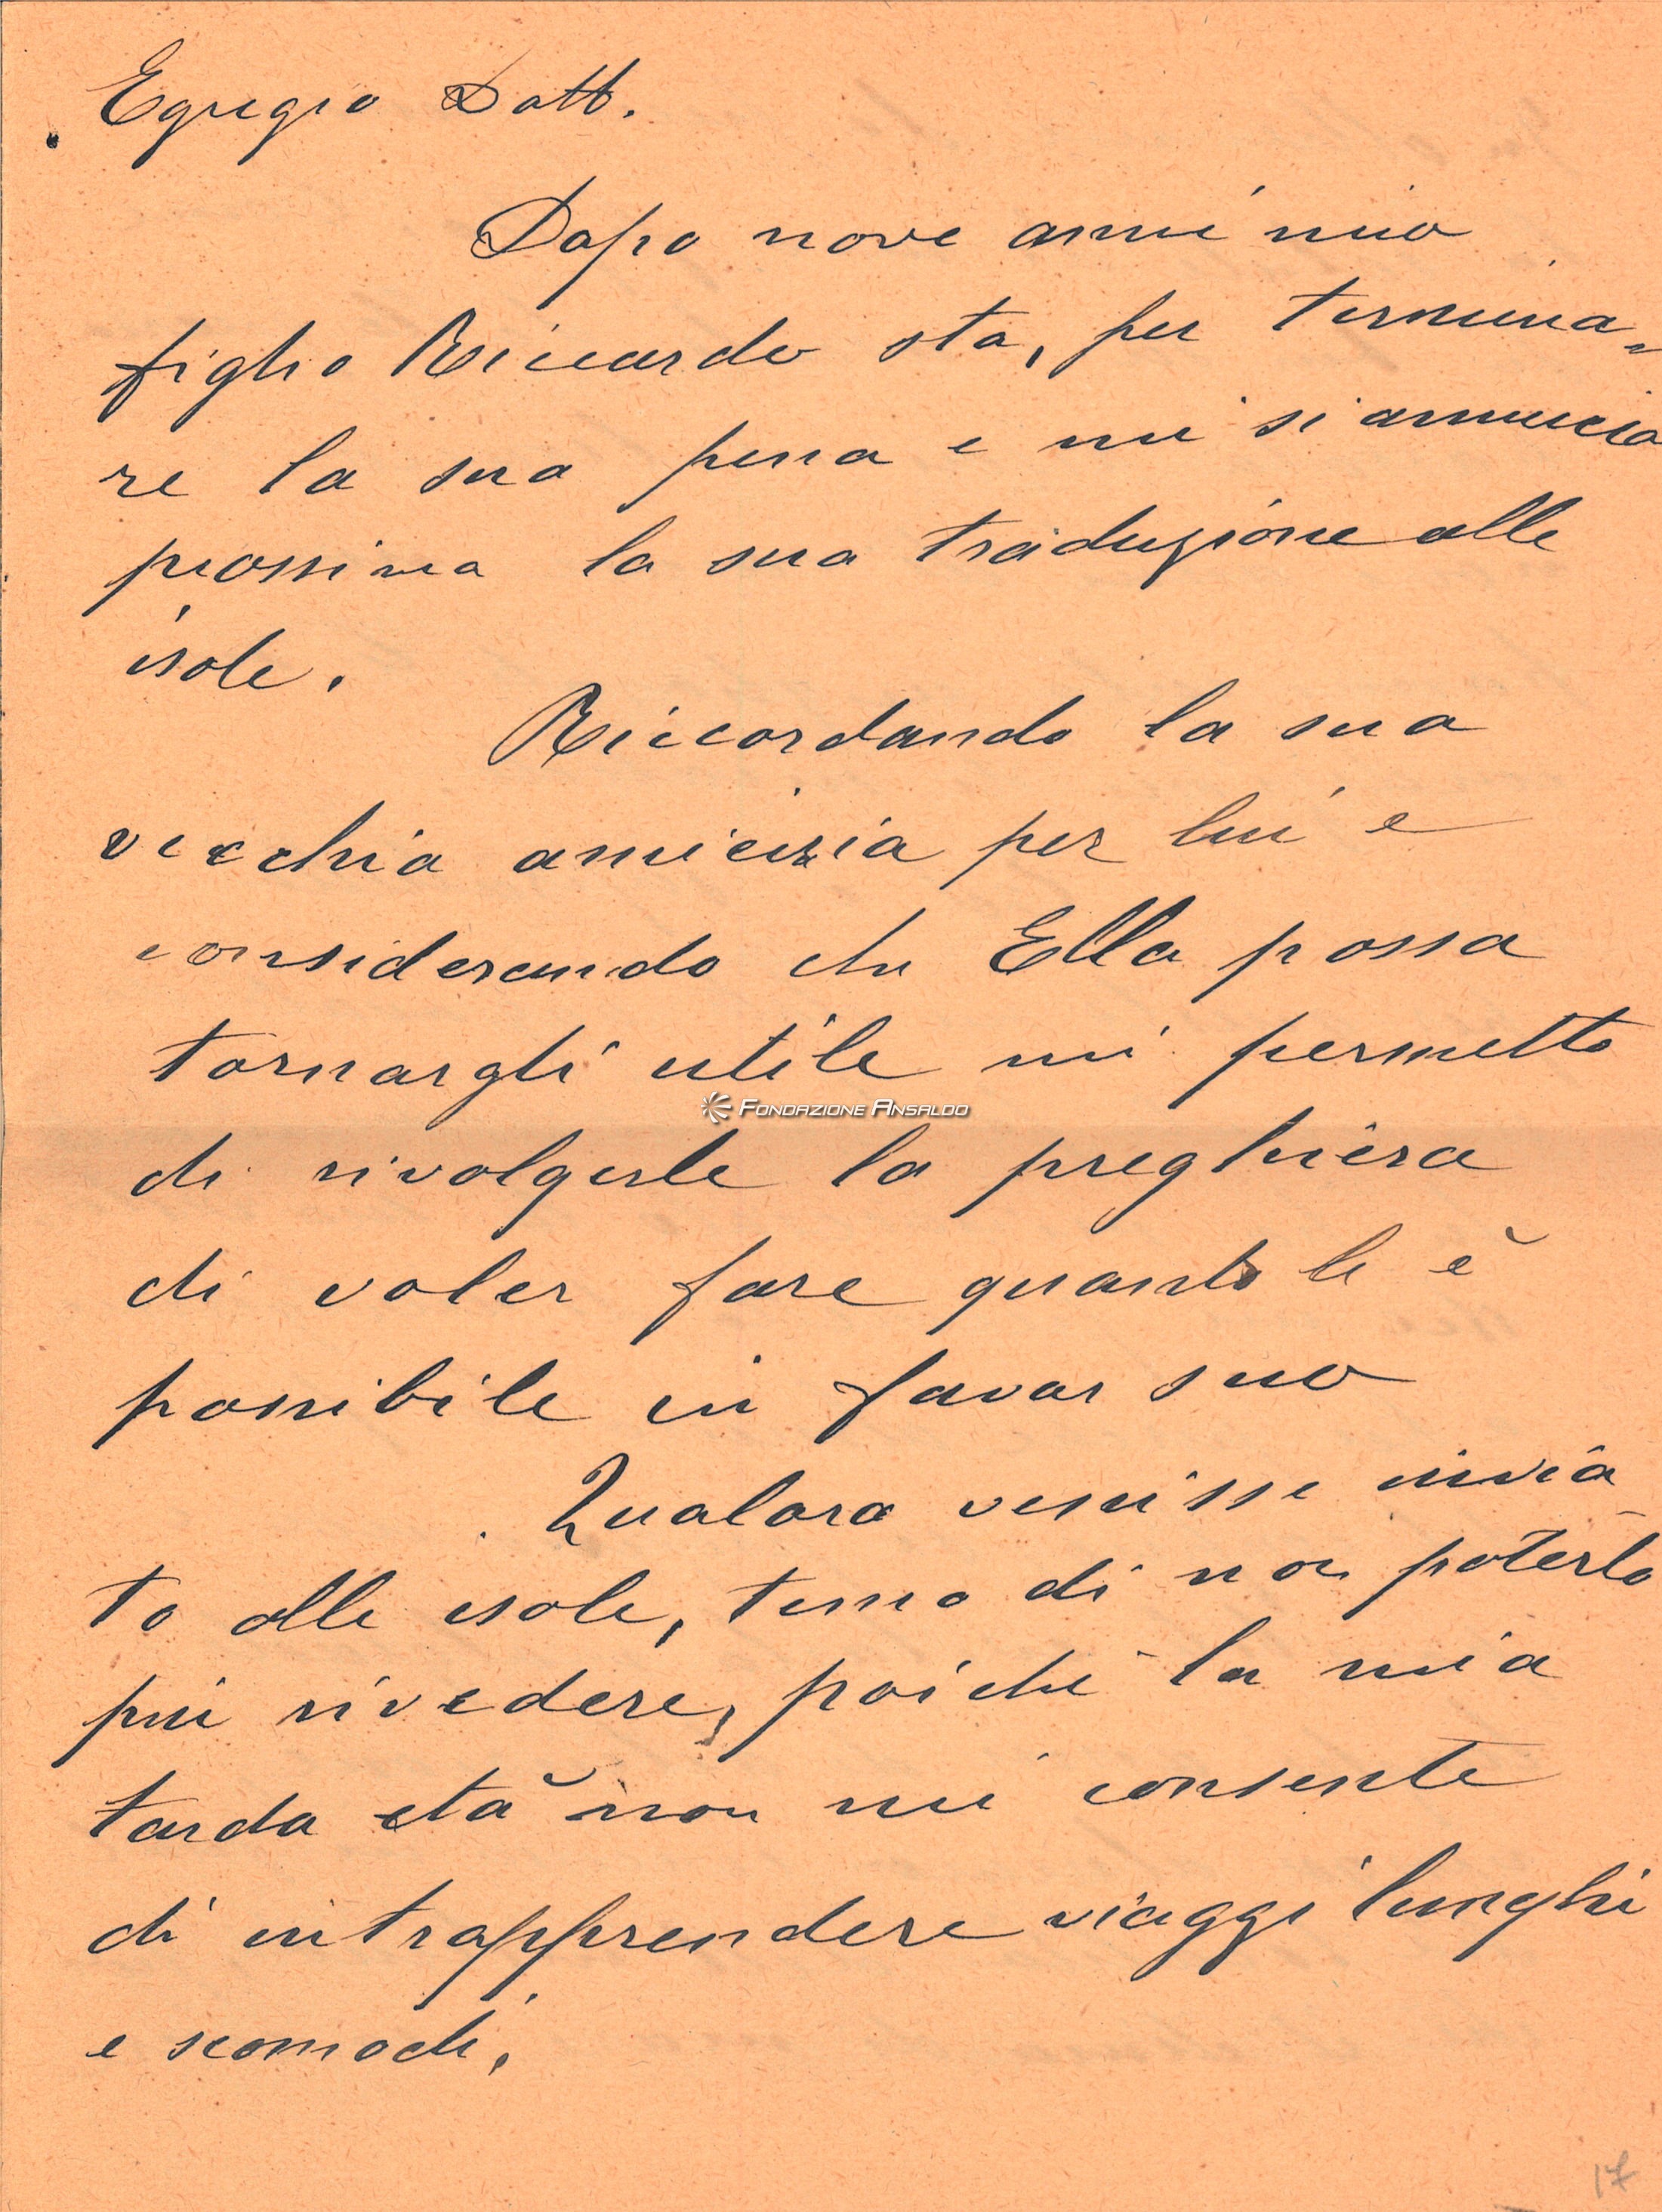 Egregio Dott.
Dopo nove anni mio
figlio Riccardo sta, per termina=
re la sua pena e mi si annuncia
prossima la sua traduzione alle
isole.
Riccordando la sua
vecchia amicizia per lui e
considerando che Ella possa
tornargli utile mi permetto
FONDAZIONE ANSALDO
di rivolgerle la preghiera
di voler fare quanto le è
possibile in favor suo
Qualora venisse invia-
to alle isole, temo di non poterlo
più rivedere, poichè la mia
tarda età non mi consente
di intrapprendere viaggi lunghi
e scomodi.
17